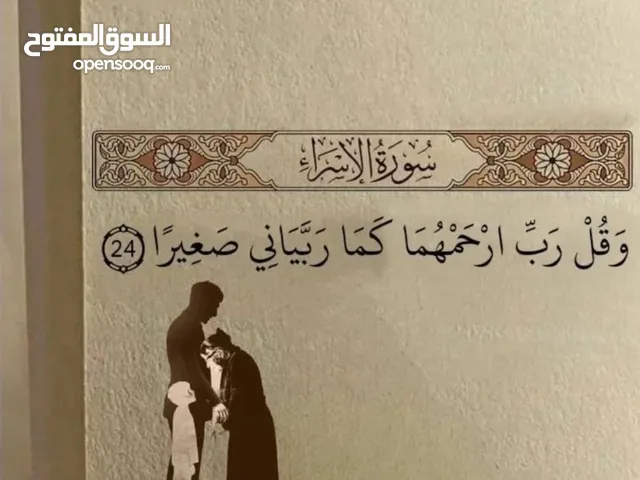 السوق المفتوح
opensooq.com
سُورَةُ الإِسْرَاءِ
وَقُلْ رَبِّ ارْحَمْهُمَا كَمَا رَبَّيَانِي صَغِيرًا 24